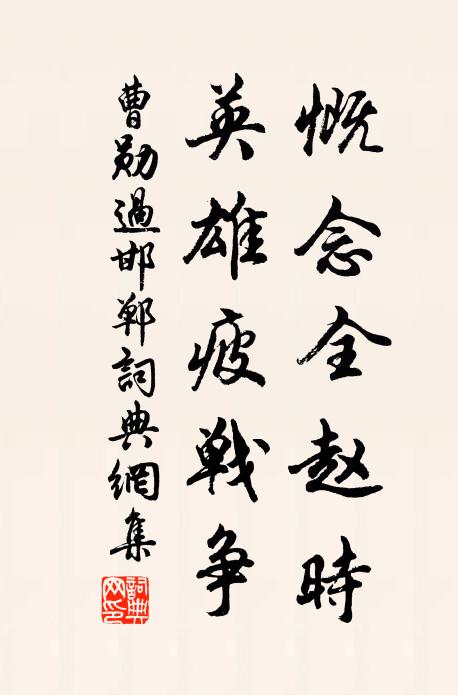 慨念全赵時
英雄疲戦争
曹勛過邯鄲詞典網集
詞典网印